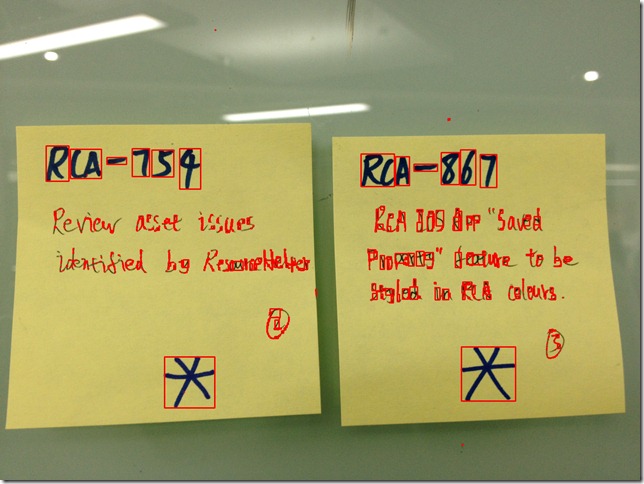 RCA-754
Review asset issues
identified by ResourceHelper
*
RCA-867
RCA IOS App "Saved
Property" feature to be
styled in RCA colours.
3
*